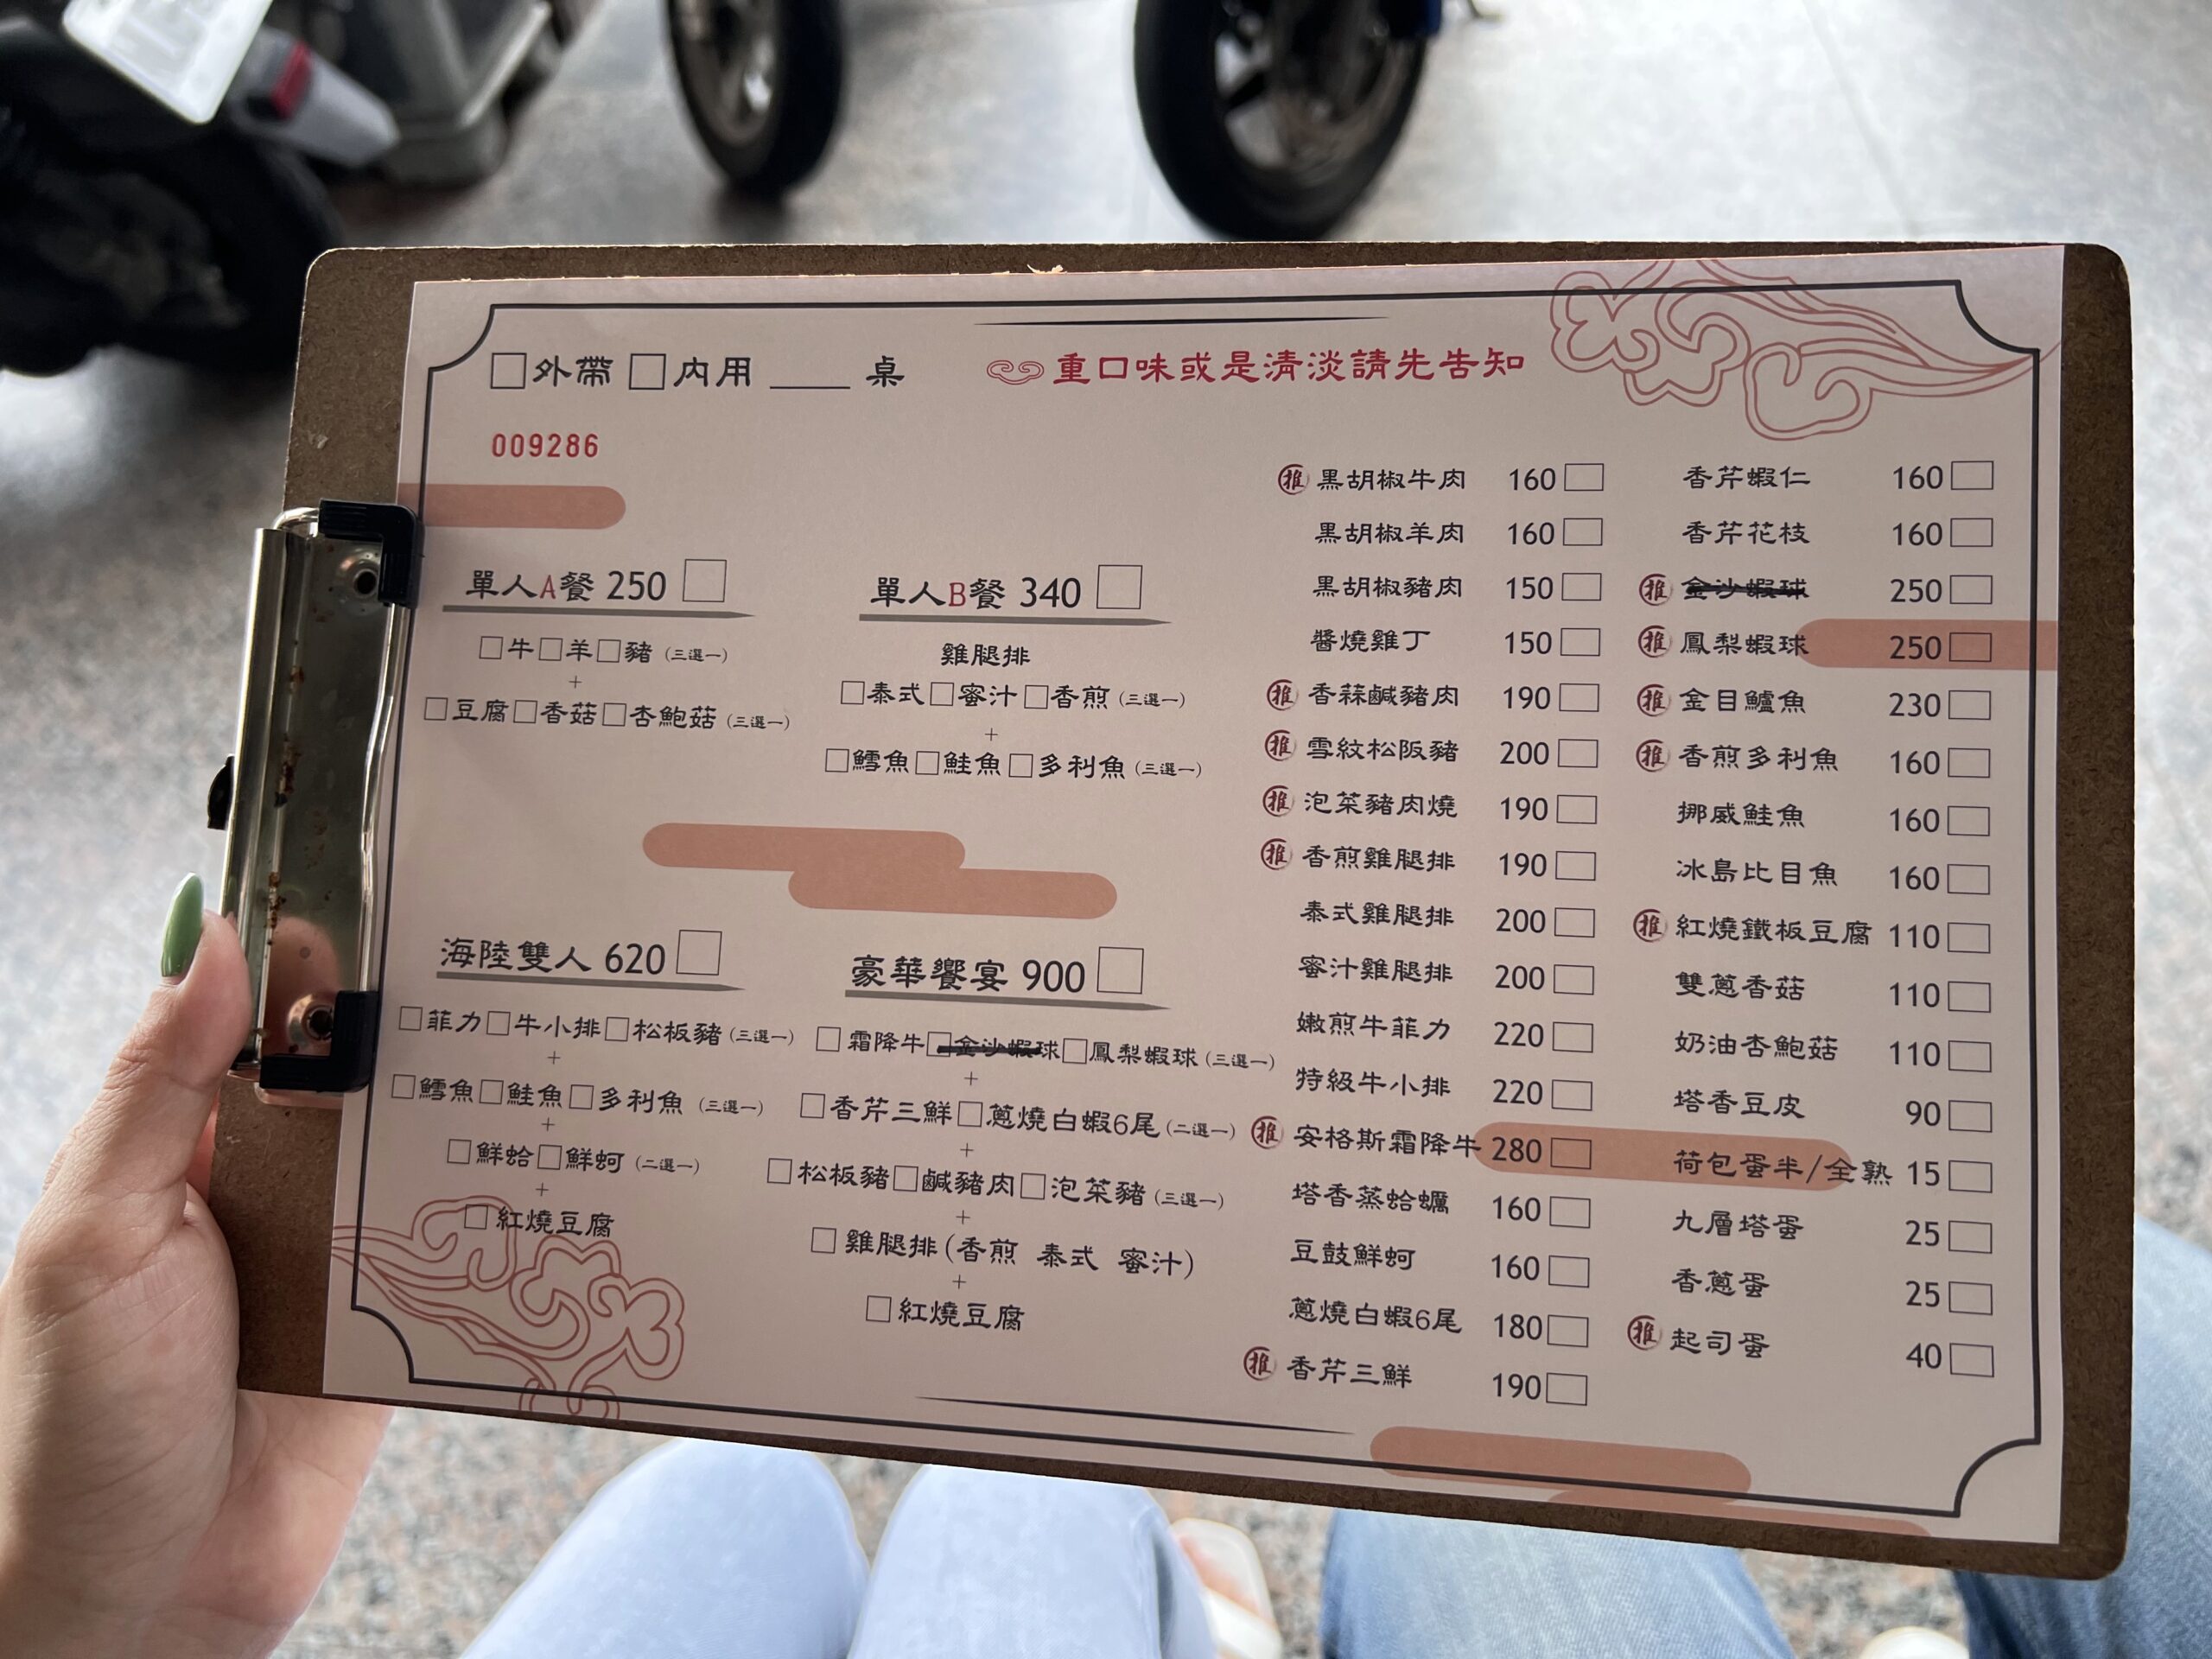 □外帶 □內用 ____ 桌
重口味或是清淡請先告知
009286
單人A餐 250 □
□牛□羊□豬 (三選一)
+
□豆腐□香菇□杏鮑菇 (三選一)
單人B餐 340 □
雞腿排
□泰式□蜜汁□香煎 (三選一)
+
□鱈魚□鮭魚□多利魚 (三選一)
海陸雙人 620 □
□菲力□牛小排□松板豬 (三選一)
+
□鱈魚□鮭魚□多利魚 (三選一)
+
□鮮蛤□鮮蚵 (二選一)
+
□紅燒豆腐
豪華饗宴 900 □
□霜降牛□金沙蝦球□鳳梨蝦球 (三選一)
+
□香芹三鮮□蔥燒白蝦6尾 (二選一)
+
□松板豬□鹹豬肉□泡菜豬 (三選一)
+
□雞腿排(香煎 泰式 蜜汁)
+
□紅燒豆腐
推 黑胡椒牛肉 160 □
黑胡椒羊肉 160 □
黑胡椒豬肉 150 □
醬燒雞丁 150 □
推 香蒜鹹豬肉 190 □
推 雪紋松阪豬 200 □
推 泡菜豬肉燒 190 □
推 香煎雞腿排 190 □
泰式雞腿排 200 □
蜜汁雞腿排 200 □
嫩煎牛菲力 220 □
特級牛小排 220 □
推 安格斯霜降牛 280 □
塔香蒸蛤蠣 160 □
豆鼓鮮蚵 160 □
蔥燒白蝦6尾 180 □
推 香芹三鮮 190 □
香芹蝦仁 160 □
香芹花枝 160 □
推 金沙蝦球 250 □
推 鳳梨蝦球 250 □
推 金目鱸魚 230 □
推 香煎多利魚 160 □
挪威鮭魚 160 □
冰島比目魚 160 □
推 紅燒鐵板豆腐 110 □
雙蔥香菇 110 □
奶油杏鮑菇 110 □
塔香豆皮 90 □
荷包蛋半/全熟 15 □
九層塔蛋 25 □
香蔥蛋 25 □
推 起司蛋 40 □